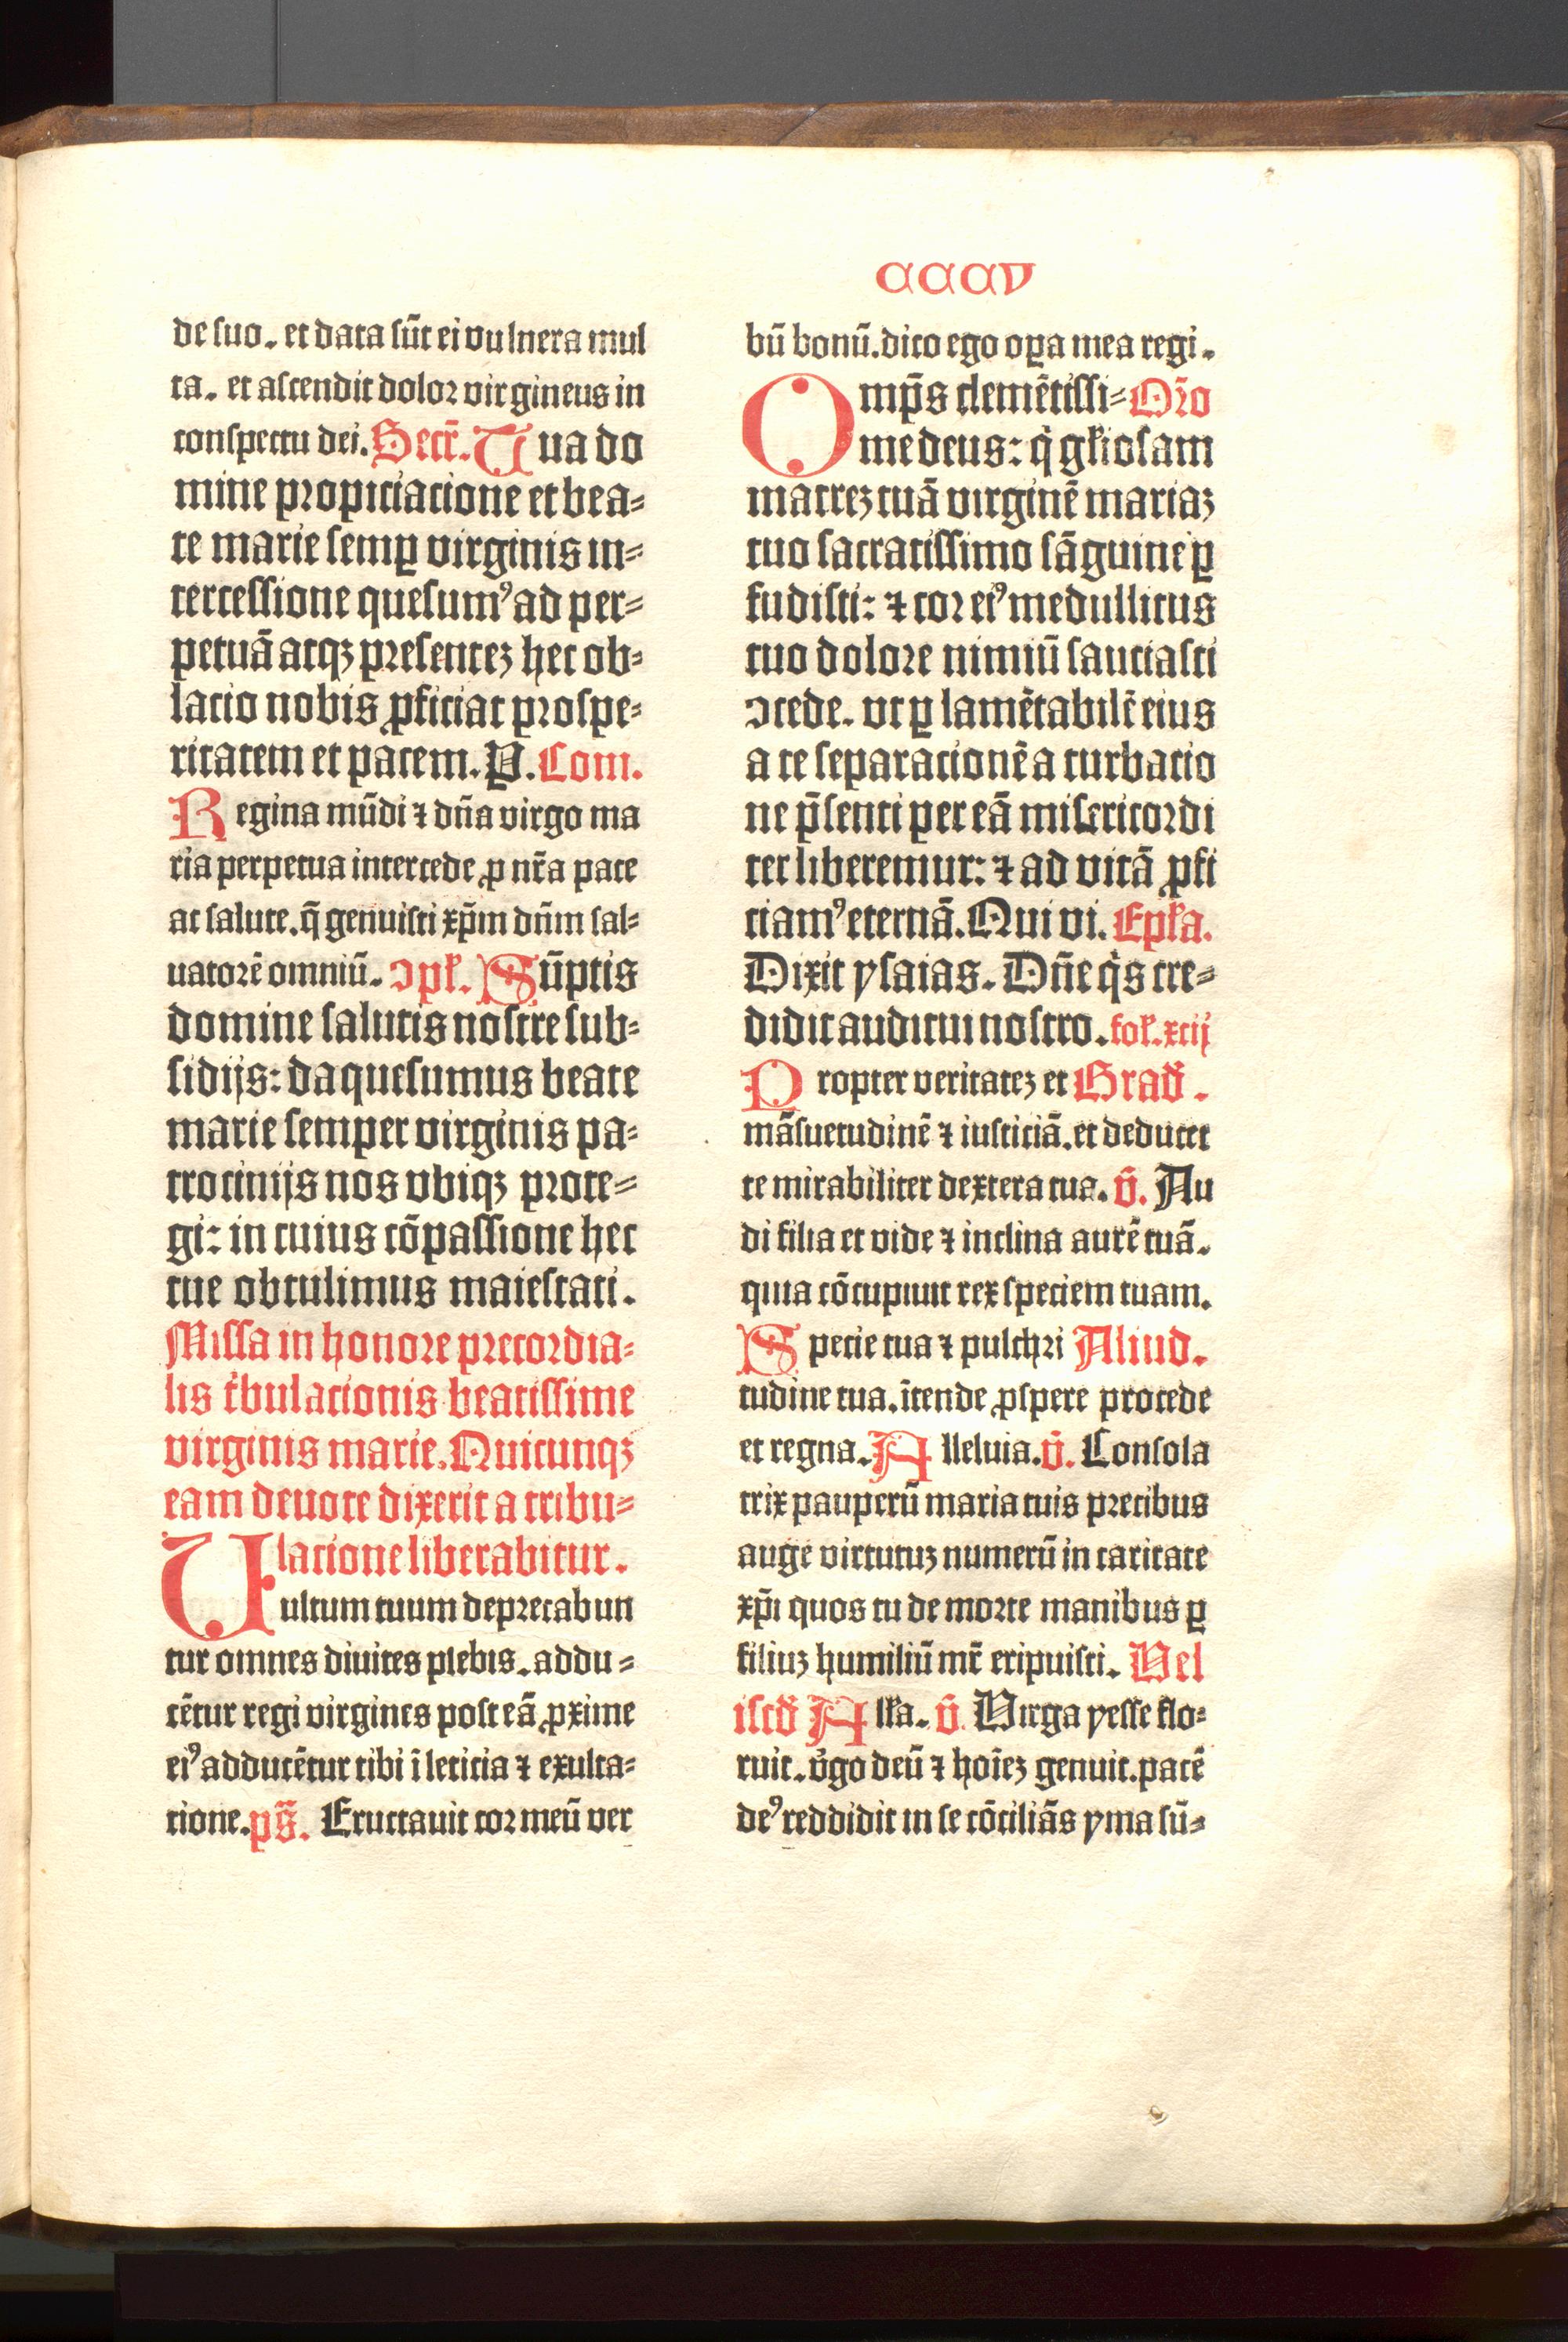 CCCV
de suo. et data sūt ei vulnera mul
ta. et ascendit dolor virgineus in
conspectu dei. Secr̄. Tua do
mine propiciacione et bea⸗
te marie semꝑ virginis in⸗
tercessione quesumꝰ ad per⸗
petuā atqꝫ presenteꝫ hec ob⸗
lacio nobis ꝓficiat prospe⸗
ritatem et pacem. P. Com.
Regina mūdi ⁊ dn̄a virgo ma
ria perpetua intercede ꝓ nr̄a pace
ac salute. q̄ genuisti xp̄m dn̄m sal⸗
uatorē omniū. ↄpł. Sūptis
domine salutis nostre sub⸗
sidijs: da quesumus beate
marie semper virginis pa⸗
trocinijs nos vbiqꝫ prote⸗
gi: in cuius cōpassione hec
tue obtulimus maiestati.
Missa in honore precordia⸗
lis tͥbulationis beatissime
virginis marie. Quicunqꝫ
eam deuote dixerit a tribu⸗
latione liberabitur.
Vultum tuum deprecabun
tur omnes diuites plebis. addu⸗
cētur regi virgines post eā ꝓxime
eiꝰ adducētur tibi ī leticia ⁊ exulta⸗
cione. ps̄. Eructauit cor meū ver
bū bonū. dico ego oꝑa mea regi.
Omp̄s clemētissi⸗ Or̄o
me deus: qͥ gło̅sam
matreꝫ tuā virginē mariaꝫ
tuo sacratissimo sāguine ꝑ
fudisti: ⁊ cor eiꝰ medullitus
tuo dolore nimiū sauciasti
ↄcede. vt ꝑ lamētabilē eius
a te separacionē a turbacio
ne p̄senti per eā misericordi
ter liberemur: ⁊ ad vitā ꝓfi
ciamꝰ eternā. Qui vi. Epła.
Dixit ysaias. Dn̄e qͥs cre⸗
didit auditui nostro. foł. xcij
Propter veritateꝫ et Grad̄.
māsuetudinē ⁊ iusticiā. et deducet
te mirabiliter dextera tua. v̄. Au
di filia et vide ⁊ inclina aurē tuā.
quia cōcupiuit rex speciem tuam.
Specie tua ⁊ pulchri Aliud.
tudine tua. ītende ꝓspere procede
et regna. Alleluia. v̄. Consola
trix pauperū maria tuis precibus
auge virtutuꝫ numerū in caritate
xp̄i quos tu de morte manibus ꝑ
filiuꝫ humiliū mr̄ eripuisti. Vel
istd̄ Ałła. v̄. Virga yesse flo⸗
ruit. v̓go deū ⁊ hoīeꝫ genuit. pacē
deꝰ reddidit in se cōciliās yma sū⸗